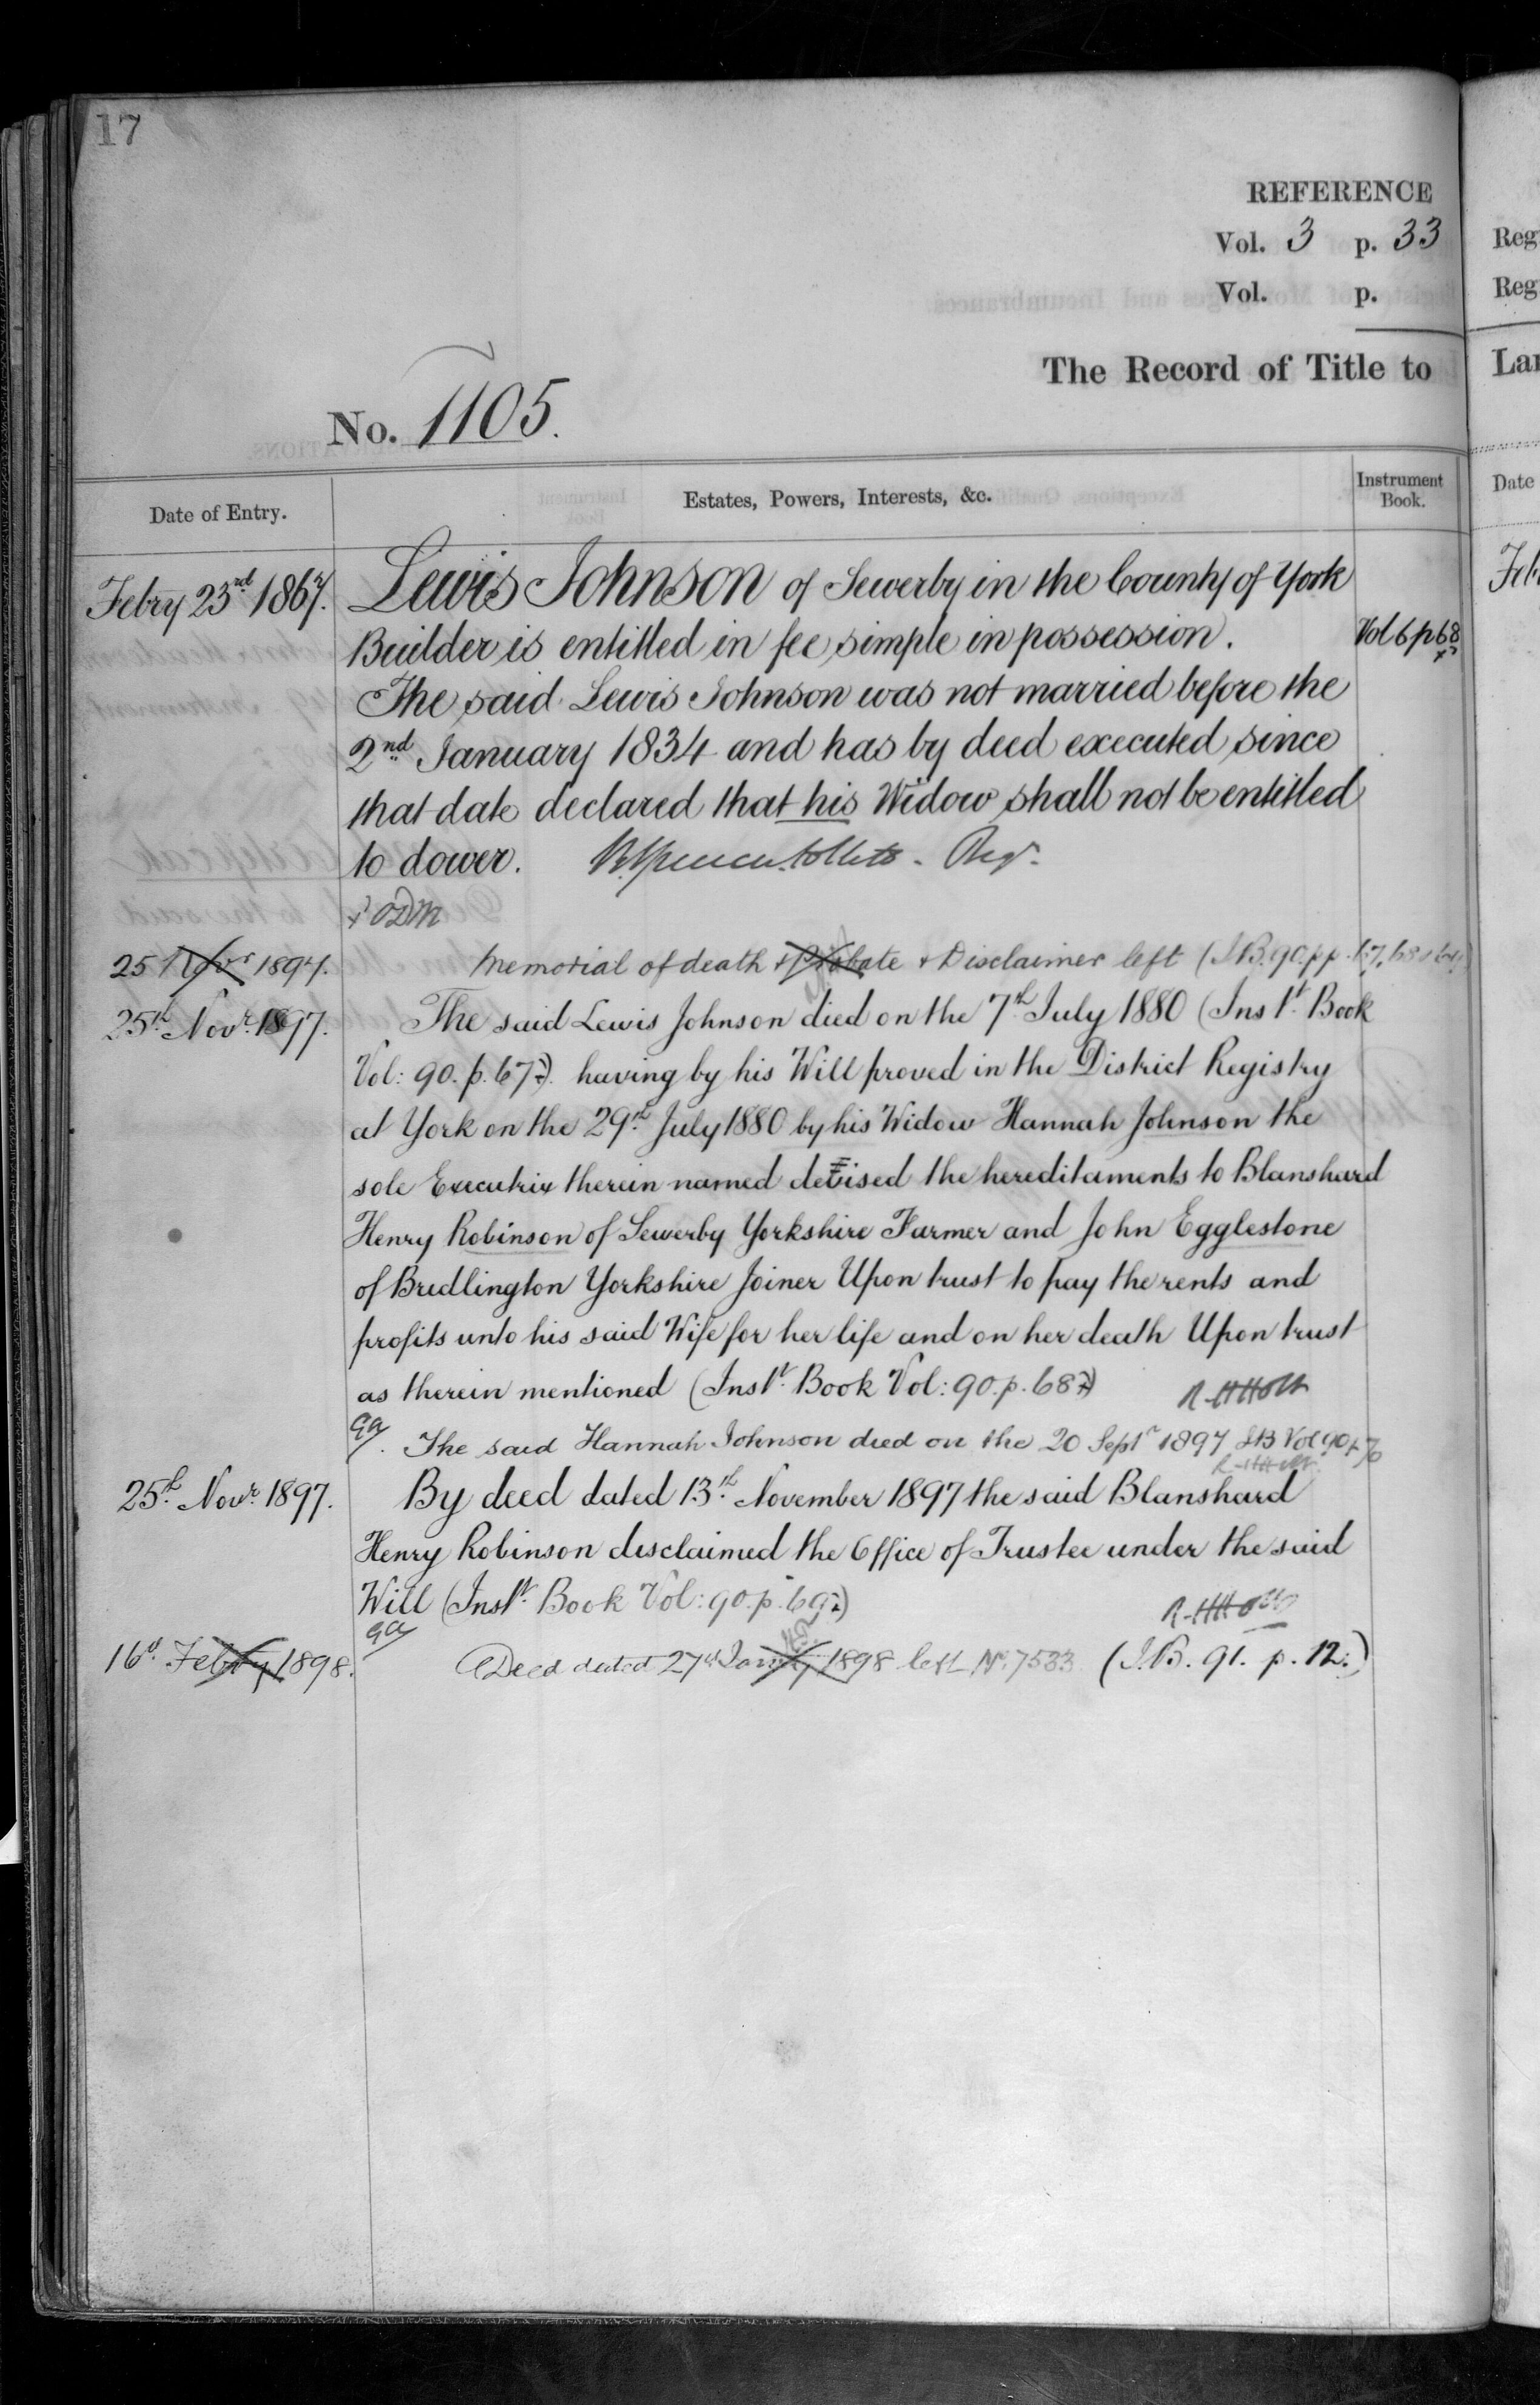 17
REFERENCE
Vol. 3 p. 33
Vol. p.
The Record of Title to
No. 1105.
Date of Entry.
Estates, Powers, Interests, &c.
Instrument Book.
Febry 23rd 1867. Lewis Johnson of Sewerby in the County of York
Builder is entitled in fee simple in possession. Vol 6 p 68
The said Lewis Johnson was not married before the
2nd January 1834 and has by deed executed since
that date declared that his Widow shall not be entitled
to dower. Regr.
25 Novr 1897. Memorial of death & Probate & Disclaimer left (I.B. 90. pp. 67, 68 & 69)
25th Novr. 1897. The said Lewis Johnson died on the 7th July 1880 (Inst. Book
Vol: 90. p. 67.) having by his Will proved in the District Registry
at York on the 29th July 1880 by his Widow Hannah Johnson the
sole Executrix therein named devised the hereditaments to Blanshard
Henry Robinson of Sewerby Yorkshire Farmer and John Egglestone
of Bridlington Yorkshire Joiner Upon trust to pay the rents and
profits unto his said Wife for her life and on her death Upon trust
as therein mentioned (Inst. Book Vol: 90. p. 68.) R. H. Holt
The said Hannah Johnson died on the 20 Septr 1897 I B Vol 90 p 70
R. H. Holt
25th Novr 1897. By deed dated 13th November 1897 the said Blanshard
Henry Robinson disclaimed the Office of Trustee under the said
Will (Inst. Book Vol: 90. p. 69.) R. H. Holt
16th Febry 1898. Deed dated 27th Jany 1898 left No. 7533 (I.B. 91. p. 12.)
Reg
Reg
Lan
Date
Feb